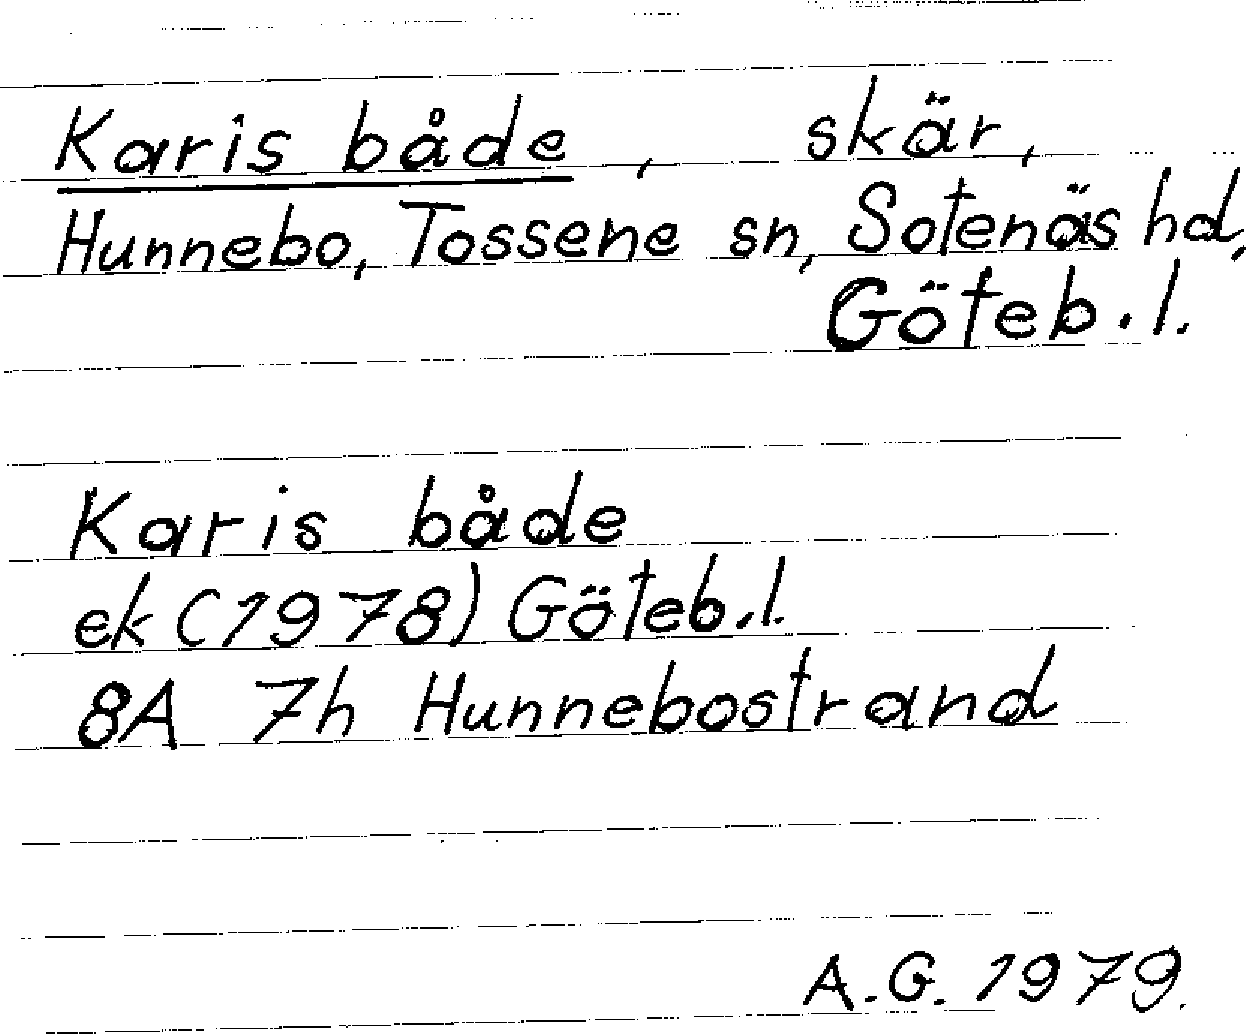 Karis både, skär,
Hunnebo, Tossene sn, Sotenäs hd,
Göteb.l.
Karis både
ek (1978) Göteb.l.
8A 7h Hunnebostrand
A.G. 1979.